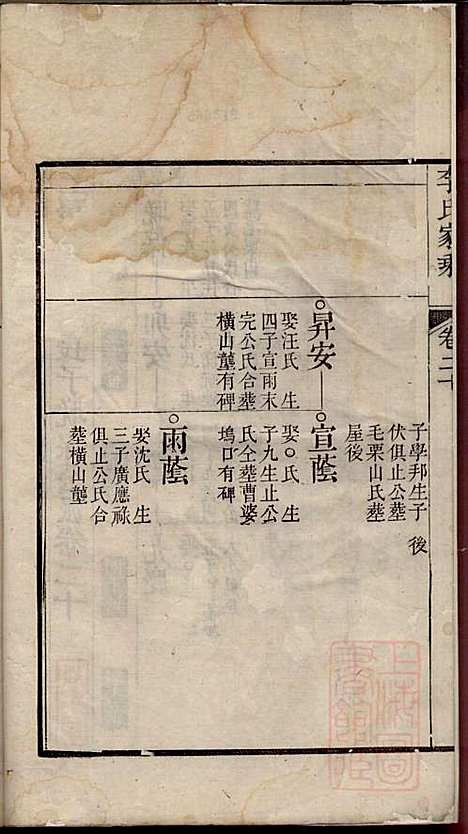 李氏家乘
卷二十
子學邦生子 後
伏俱止公葬
毛栗山氏葬
屋後
昇安
娶汪氏 生
四子宣雨末
完公氏合葬
橫山壟有碑
宣蔭
娶○氏 生
子九生止公
氏仝葬曹婆
塢口有碑
雨蔭
娶沈氏 生
三子廣應祿
俱止公氏合
葬橫山壟